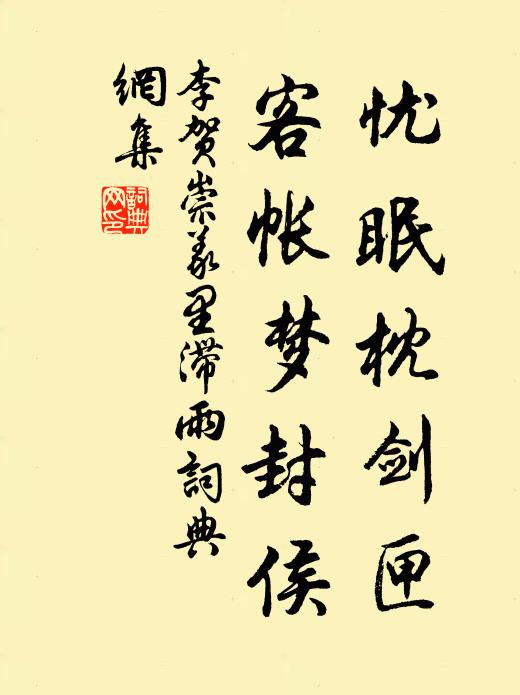 忧眠枕剑匣
客帐梦封侯
李贺崇义里滞雨詞典
網集
詞典網印